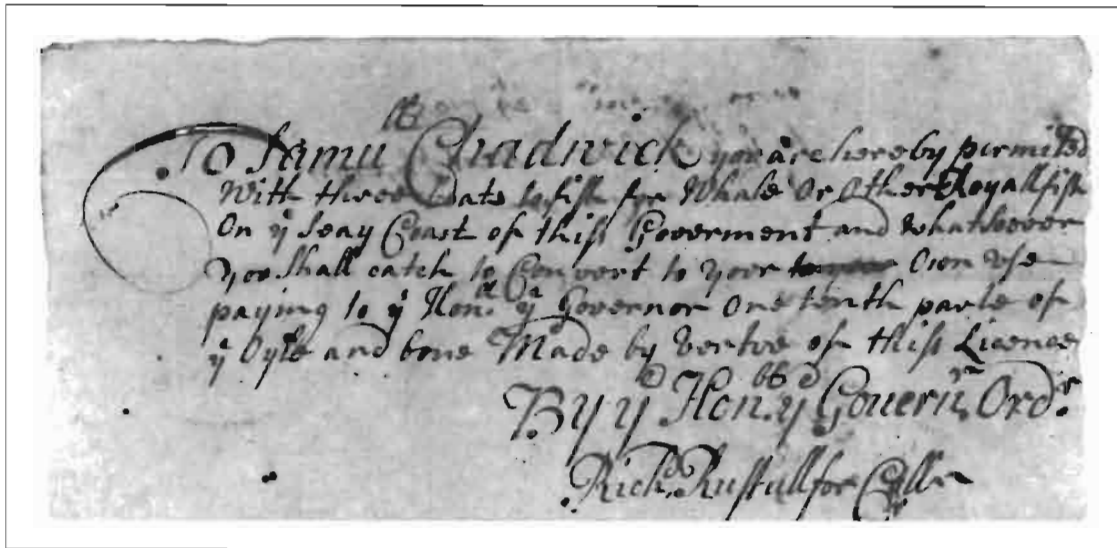 To Samll Chadwick you are hereby permited
With three boats to fish for Whale Or Other Royall fish
On ye Seay Coast of thiss Goverment and whatsoever
you Shall catch to Convert to your Own Vse
paying to ye Honble ye Governor One tenth parte of
ye Oyle and bone Made by Vertve of thiss Licence
By ye Honble ye Gouernrs Ordr
Richd Rustull for